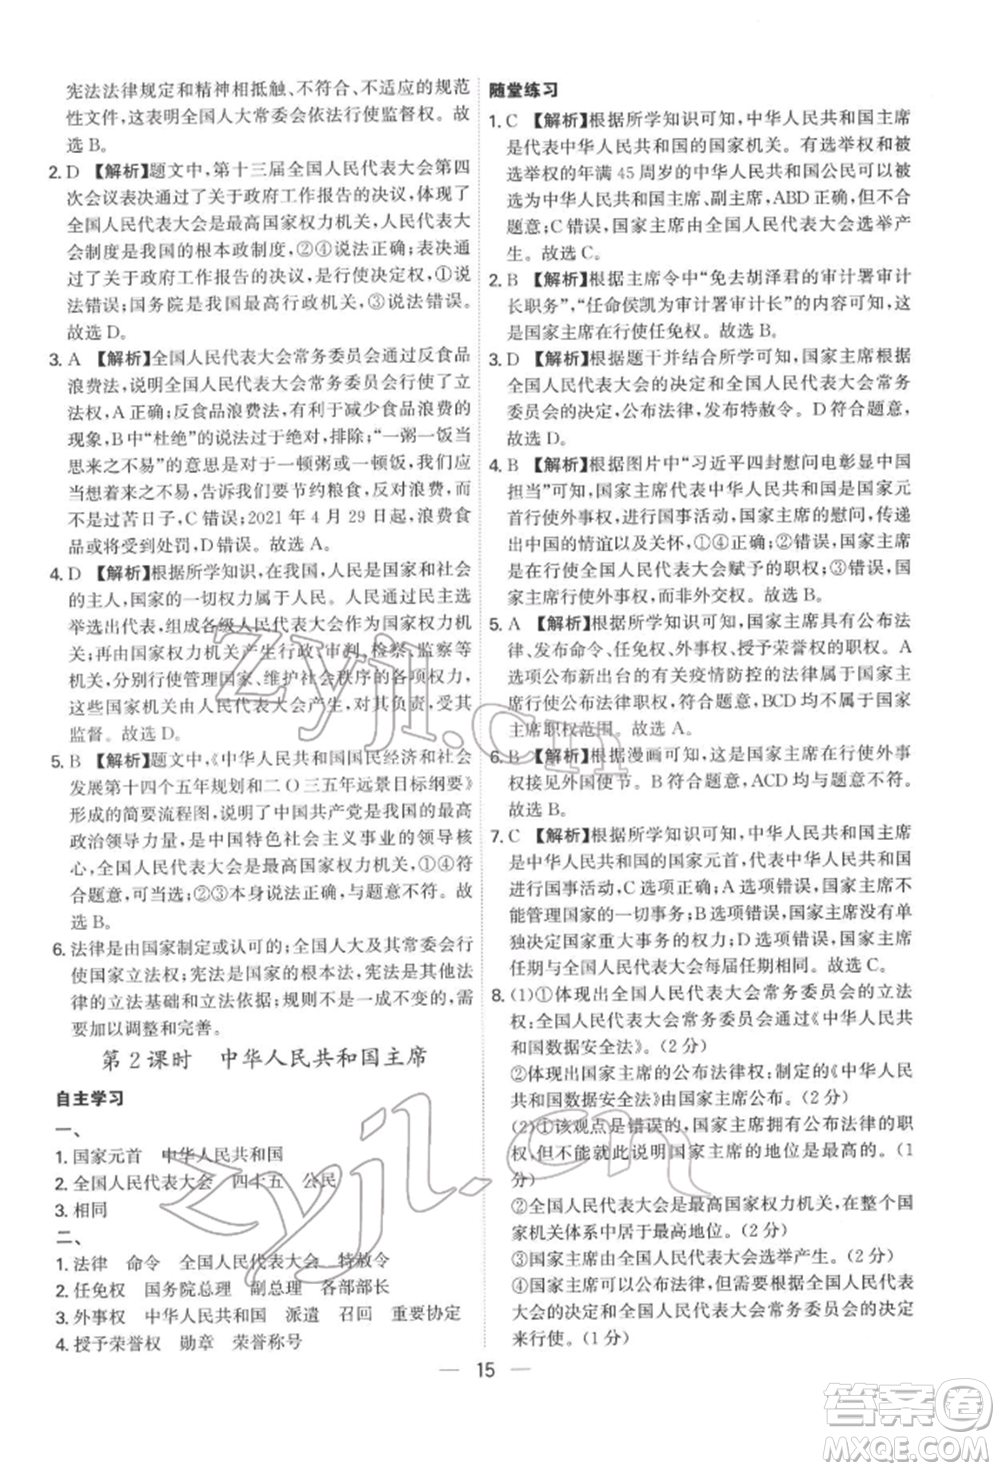 宪法法律规定和精神相抵触、不符合、不适当的规范
性文件,这表明全国人大常委会依法行使监督权。故
选B。
2. D 【解析】题文中,第十三届全国人民代表大会第四
次会议表决通过了关于政府工作报告的决议,体现了
全国人民代表大会是最高国家权力机关,人民代表大
会制度是我国的根本政治制度,②④说法正确;表决通
过了关于政府工作报告的决议,是行使决定权,①说
法错误;国务院是我国最高行政机关,③说法错误。
故选D。
3. A 【解析】全国人民代表大会常务委员会通过反食品
浪费法,说明全国人民代表大会常务委员会行使了立
法权,A正确;反食品浪费法,有利于减少食品浪费的
现象,B中“杜绝”的说法过于绝对,排除;“一粥一饭当
思来之不易”的意思是对于一顿粥或一顿饭,我们应当
想着来之不易,告诉我们要节约粮食,反对浪费,而不
是过苦日子,C错误;2021年4月29日起,浪费食
品或将受到处罚,D错误。故选A。
4. D 【解析】根据所学知识,在我国,人民是国家和社会
的主人,国家的一切权力属于人民。人民通过民主
选出代表,组成各级人民代表大会作为国家权力机关,
再由国家权力机关产生行政、审判、检察、监察等机
关,分别行使管理国家、维护社会秩序等的各项权力,
这些国家机关由人民代表大会产生,对其负责,受其
监督。故选D。
5. B 【解析】题文中,《中华人民共和国国民经济和社会
发展第十四个五年规划和二〇三五年远景目标纲要》
形成的简要流程图,说明了中国共产党是我国的最高
政治领导力量,是中国特色社会主义事业的领导核
心,全国人民代表大会是最高国家权力机关,①④符
合题意,可选;②③本身说法正确,但与题意不符。故
选B。
6. 法律是由国家制定或认可的;全国人大及其常委会行
使国家立法权;宪法是国家的根本法,是其他一切法
律的立法基础和立法依据;规则不是一成不变的,需
要加以调整和完善。
第2课时 中华人民共和国主席
自主学习
一、
1. 国家元首 中华人民共和国
2. 全国人民代表大会 四十五 公民
3. 相同
二、
1. 法律 命令 全国人民代表大会 特赦令
2. 任免权 国务院总理 副总理 各部部长
3. 外事权 中华人民共和国 派遣 召回 重要协定
4. 授予荣誉权 勋章 荣誉称号
随堂练习
1. C 【解析】根据所学知识可知,中华人民共和国主席
是中华人民共和国的国家机关。有选举权和被
选举权的年满45周岁的中华人民共和国公民可以被
选为中华人民共和国主席、副主席,ABD正确,但不
符合题意;C错误,国家主席由全国人民代表大会选举产
生。故选C。
2. B 【解析】根据主席令中“免去胡泽君的审计署审计
长职务”,“任命侯凯为审计署审计长”的内容可知,这
是国家主席在行使任免权。故选B。
3. D 【解析】根据题干并结合所学可知,国家主席根据
全国人民代表大会的决定和全国人民代表大会常务
委员会的决定,公布法律,发布特赦令。D符合题意,
故选D。
4. B 【解析】根据图片中“习近平四封慰问电彰显中国
担当”可知,国家主席代表中华人民共和国是国家元
首行使外事权,进行国事活动,国家主席的慰问,传递
出中国的情谊以及关怀,①④正确;②错误,国家主席
是在行使全国人民代表大会赋予的职权;③错误,国
家主席行使外事权,而非外交权。故选B。
5. A 【解析】根据所学知识可知,国家主席具有公布法
律、发布命令、任免权、外事权、授予荣誉权的职权。A
选项公布新出台的有关疫情防控的法律,属于国家主
席行使公布法律职权,符合题意,BCD均不属于国家
主席职权范围。故选A。
6. B 【解析】根据漫画可知,这是国家主席在行使外事
权接见外国使节。B符合题意,ACD均与题意不符。
故选B。
7. C 【解析】根据所学知识可知,中华人民共和国主席
是中华人民共和国的国家元首,代表中华人民共和国
进行国事活动,C选项正确;A选项错误,国家主席不
能管理国家的一切事务;B选项错误,国家主席没有单
独决定国家重大事务的权力;D选项错误,国家主席
每届任期与全国人民代表大会每届任期相同。故选C。
8. (1)①体现出全国人民代表大会常务委员会的立法
权:全国人民代表大会常务委员会通过《中华人民共
和国数据安全法》。(2分)
②体现出国家主席的公布法律权:制定的《中华人民共
和国数据安全法》由国家主席公布。(2分)
(2)①该观点是错误的,国家主席拥有公布法律的职
权,但不能就此说明国家主席的地位是最高的。(1
分)
②全国人民代表大会是我国最高国家权力机关,在整个
国家机关体系中居于最高地位。(2分)
③国家主席由全国人民代表大会选举产生。(2分)
④国家主席可以公布法律,但要根据全国人民代表
大会的决定和全国人民代表大会常务委员会的决定
来行使。(1分)
15
zyjl.cn
zyjl.cn
答案圈
MXQE.COM